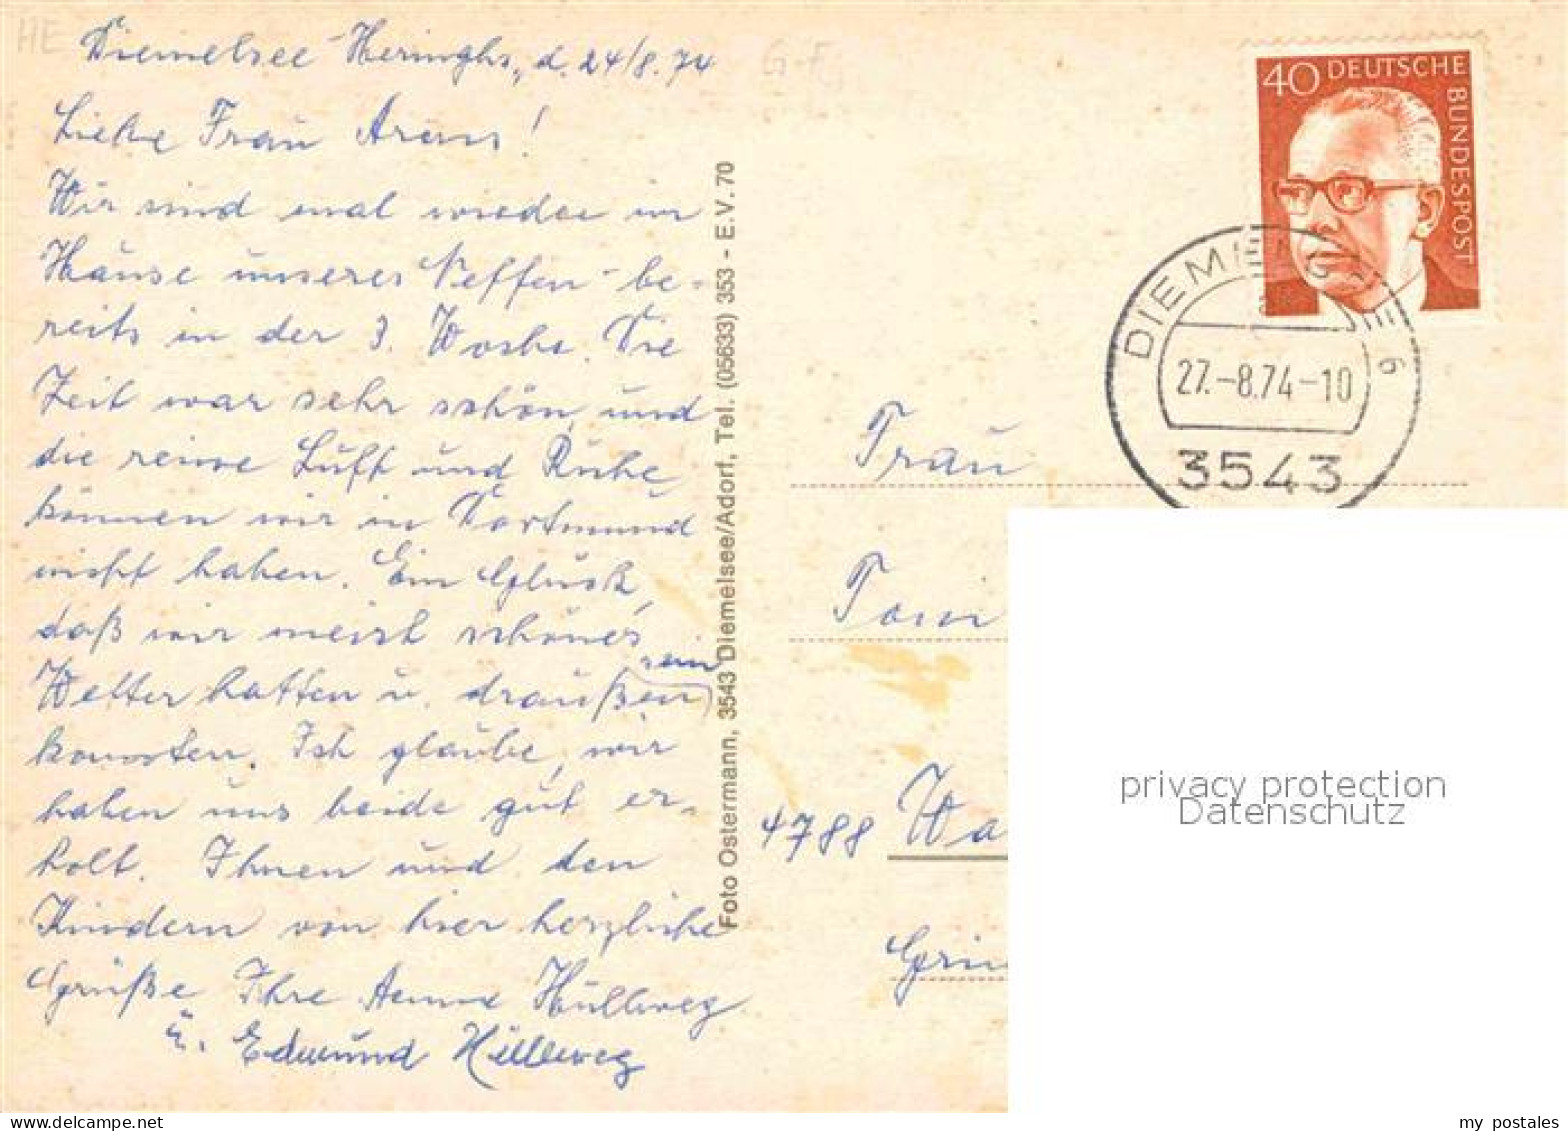 HE
Diemelsee-Heringhs., d. 24/8. 74
G-E
Liebe Frau Arens!
Wir sind mal wieder im
Hause unseres Neffen - be-
reits in der 3. Woche. Die
Zeit war sehr schön, und
die reine Luft und Ruhe
können wir in Dortmund
nicht haben. Ein Glück,
daß wir meist schönes
Wetter hatten u. draußen sein
konnten. Ich glaube, wir
haben uns beide gut er-
holt. Ihnen und den
Kindern von hier herzliche
Grüße Ihre Aenne Hüllweg
u. Edmund Hüllweg
Foto Ostermann, 3543 Diemelsee/Adorf, Tel. (05633) 353 - E. V. 70
40 DEUTSCHE BUNDESPOST
DIEMELSEE 6
27.-8.74-10
3543
Frau
Toni
4788 Wa
Grim
privacy protection
Datenschutz
my postales